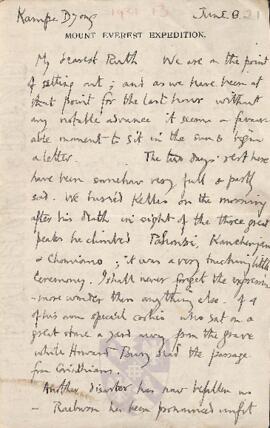 Kampa Dzong June 8 21
MOUNT EVEREST EXPEDITION.
My dearest Ruth We are on the point
of setting out; and as we have been at
that point for the last hour without
any notable advance it seems a favour-
able moment to sit in the sun & begin
a letter. The two days' rest here
have been somehow very full & partly
sad. We buried Kellas on the morning
after his death in sight of the three great
peaks he climbed Pahunri, Kanchenjau
& Chomiomo; it was a very touching little
ceremony. I shall never forget the expression
- more wonder than anything else - of 4
of his own special coolies who sat on a
great stone a yard away from the grave
while Howard Bury read the passage
from Corinthians.
Another disaster has now befallen us
- Raeburn has been pronounced unfit